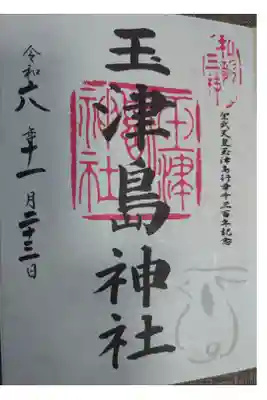 和歌三神
聖武天皇玉津島行幸千三百年記念
玉津島神社
玉津島神社
令和六年十一月二十三日